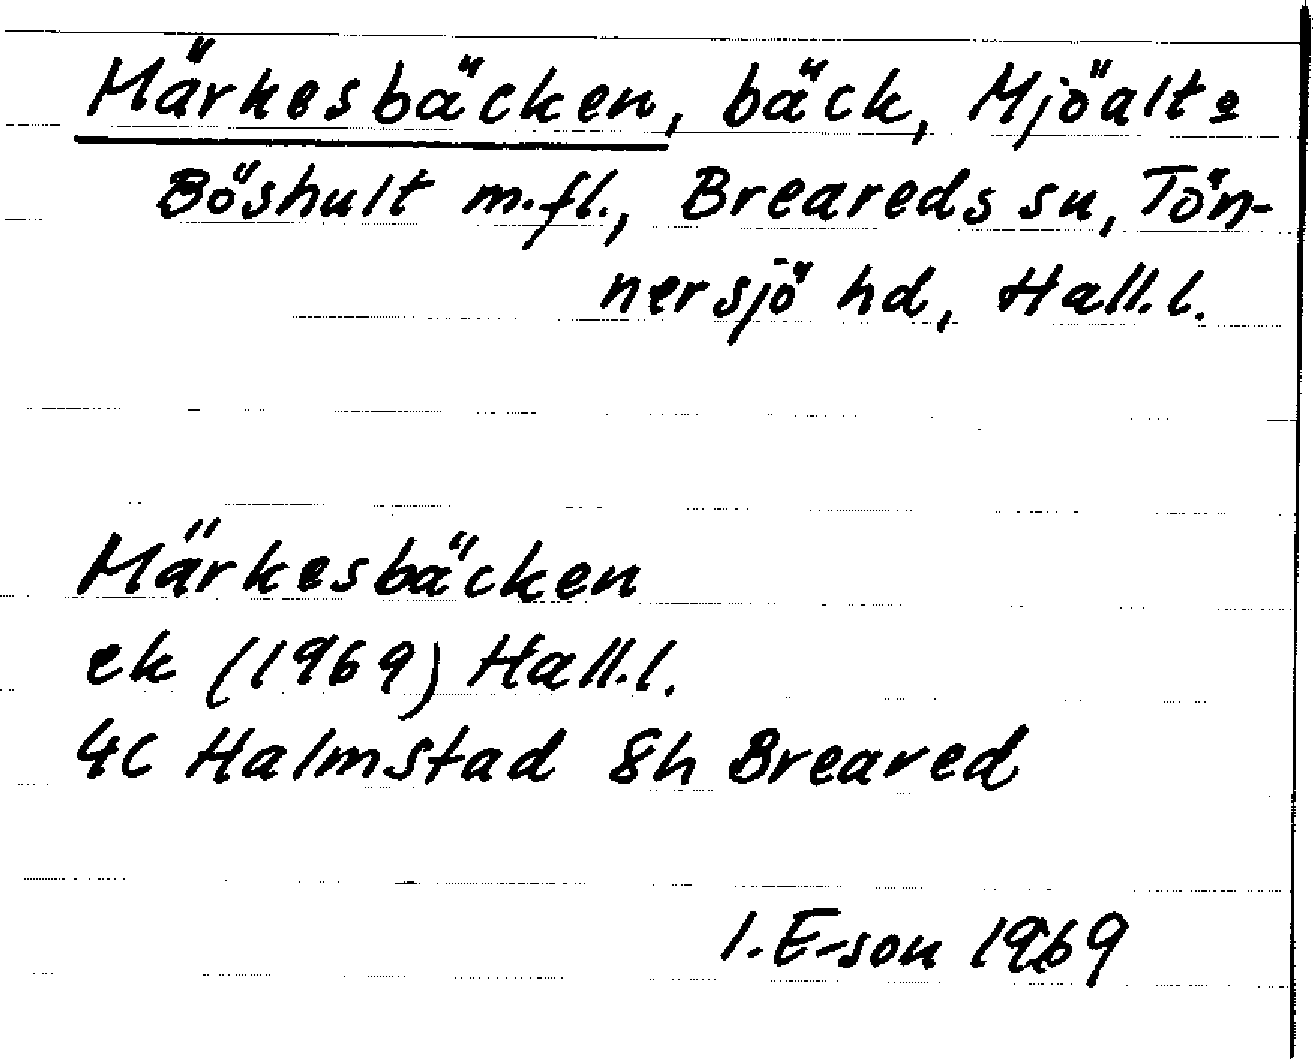 Märkesbäcken, bäck, Mjöalt o
Böshult m.fl., Breareds sn, Tön-
nersjö hd, Hall.l.
Märkesbäcken
ek (1969) Hall.l.
4C Halmstad 8h Breared
I. E-son 1969